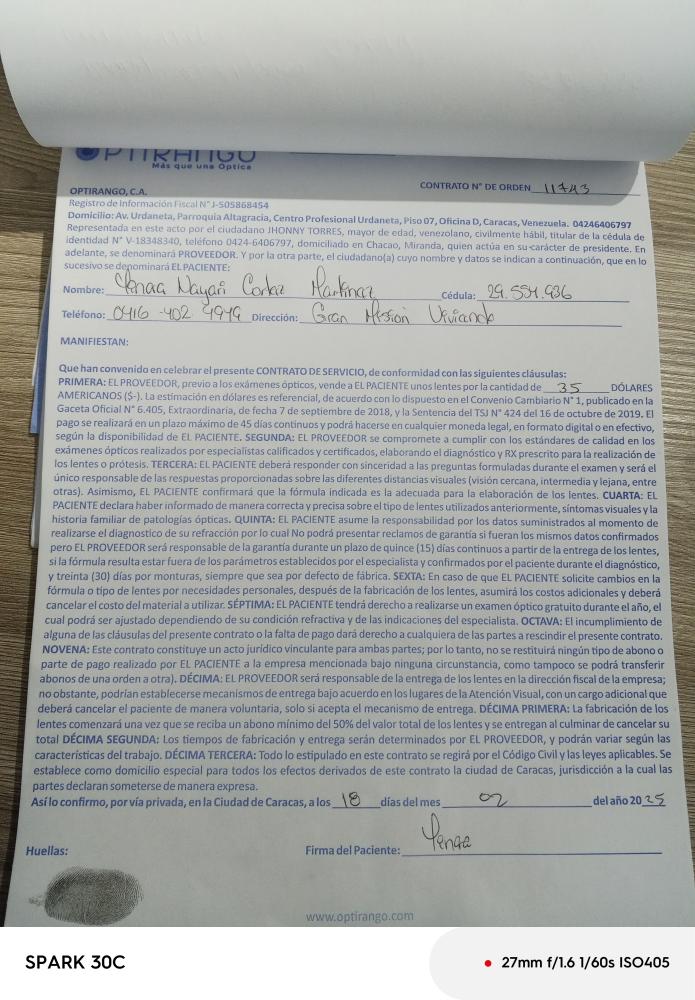 OPTIRANGO
Más que una Óptica
CONTRATO N° DE ORDEN 11743
OPTIRANGO, C.A.
Registro de Información Fiscal N° J-505868454
Domicilio: Av. Urdaneta, Parroquia Altagracia, Centro Profesional Urdaneta, Piso 07, Oficina D, Caracas, Venezuela. 04246406797
Representada en este acto por el ciudadano JHONNY TORRES, mayor de edad, venezolano, civilmente hábil, titular de la cédula de
identidad N° V-18348340, teléfono 0424-6406797, domiciliado en Chacao, Miranda, quien actúa en su carácter de presidente. En
adelante, se denominará PROVEEDOR. Y por la otra parte, el ciudadano(a) cuyo nombre y datos se indican a continuación, que en lo
sucesivo se denominará EL PACIENTE:
Nombre: Nayari Martinez Cédula: 29.554.936
Teléfono: 0416-402 4949 Dirección: Gran Mision Vivienda
MANIFIESTAN:
Que han convenido en celebrar el presente CONTRATO DE SERVICIO, de conformidad con las siguientes cláusulas:
PRIMERA: EL PROVEEDOR, previo a los exámenes ópticos, vende a EL PACIENTE unos lentes por la cantidad de 35 DÓLARES
AMERICANOS ($-). La estimación en dólares es referencial, de acuerdo con lo dispuesto en el Convenio Cambiario N° 1, publicado en la
Gaceta Oficial N° 6.405, Extraordinaria, de fecha 7 de septiembre de 2018, y la Sentencia del TSJ N° 424 del 16 de octubre de 2019. El
pago se realizará en un plazo máximo de 45 días continuos y podrá hacerse en cualquier moneda legal, en formato digital o en efectivo,
según la disponibilidad de EL PACIENTE. SEGUNDA: EL PROVEEDOR se compromete a cumplir con los estándares de calidad en los
exámenes ópticos realizados por especialistas calificados y certificados, elaborando el diagnóstico y RX prescrito para la realización de
los lentes o prótesis. TERCERA: EL PACIENTE deberá responder con sinceridad a las preguntas formuladas durante el examen y será el
único responsable de las respuestas proporcionadas sobre las diferentes distancias visuales (visión cercana, intermedia y lejana, entre
otras). Asimismo, EL PACIENTE confirmará que la fórmula indicada es la adecuada para la elaboración de los lentes. CUARTA: EL
PACIENTE declara haber informado de manera correcta y precisa sobre el tipo de lentes utilizados anteriormente, síntomas visuales y la
historia familiar de patologías ópticas. QUINTA: EL PACIENTE asume la responsabilidad por los datos suministrados al momento de
realizarse el diagnostico de su refracción por lo cual No podrá presentar reclamos de garantía si fueran los mismos datos confirmados
pero EL PROVEEDOR será responsable de la garantía durante un plazo de quince (15) días continuos a partir de la entrega de los lentes,
si la fórmula resulta estar fuera de los parámetros establecidos por el especialista y confirmados por el paciente durante el diagnóstico,
y treinta (30) días por monturas, siempre que sea por defecto de fábrica. SEXTA: En caso de que EL PACIENTE solicite cambios en la
fórmula o tipo de lentes por necesidades personales, después de la fabricación de los lentes, asumirá los costos adicionales y deberá
cancelar el costo del material a utilizar. SÉPTIMA: EL PACIENTE tendrá derecho a realizarse un examen óptico gratuito durante el año, el
cual podrá ser ajustado dependiendo de su condición refractiva y de las indicaciones del especialista. OCTAVA: El incumplimiento de
alguna de las cláusulas del presente contrato o la falta de pago dará derecho a cualquiera de las partes a rescindir el presente contrato.
NOVENA: Este contrato constituye un acto jurídico vinculante para ambas partes; por lo tanto, no se restituirá ningún tipo de abono o
parte de pago realizado por EL PACIENTE a la empresa mencionada bajo ninguna circunstancia, como tampoco se podrá transferir
abonos de una orden a otra). DÉCIMA: EL PROVEEDOR será responsable de la entrega de los lentes en la dirección fiscal de la empresa;
no obstante, podrían establecerse mecanismos de entrega bajo acuerdo en los lugares de la Atención Visual, con un cargo adicional que
deberá cancelar el paciente de manera voluntaria, solo si acepta el mecanismo de entrega. DÉCIMA PRIMERA: La fabricación de los
lentes comenzará una vez que se reciba un abono mínimo del 50% del valor total de los lentes y se entregan al culminar de cancelar su
total DÉCIMA SEGUNDA: Los tiempos de fabricación y entrega serán determinados por EL PROVEEDOR, y podrán variar según las
características del trabajo. DÉCIMA TERCERA: Todo lo estipulado en este contrato se regirá por el Código Civil y las leyes aplicables. Se
establece como domicilio especial para todos los efectos derivados de este contrato la ciudad de Caracas, jurisdicción a la cual las
partes declaran someterse de manera expresa.
Así lo confirmo, por vía privada, en la Ciudad de Caracas, a los 18 días del mes 02 del año 2025
Huellas:
Firma del Paciente:
www.optirango.com
SPARK 30C
27mm f/1.6 1/60s ISO405